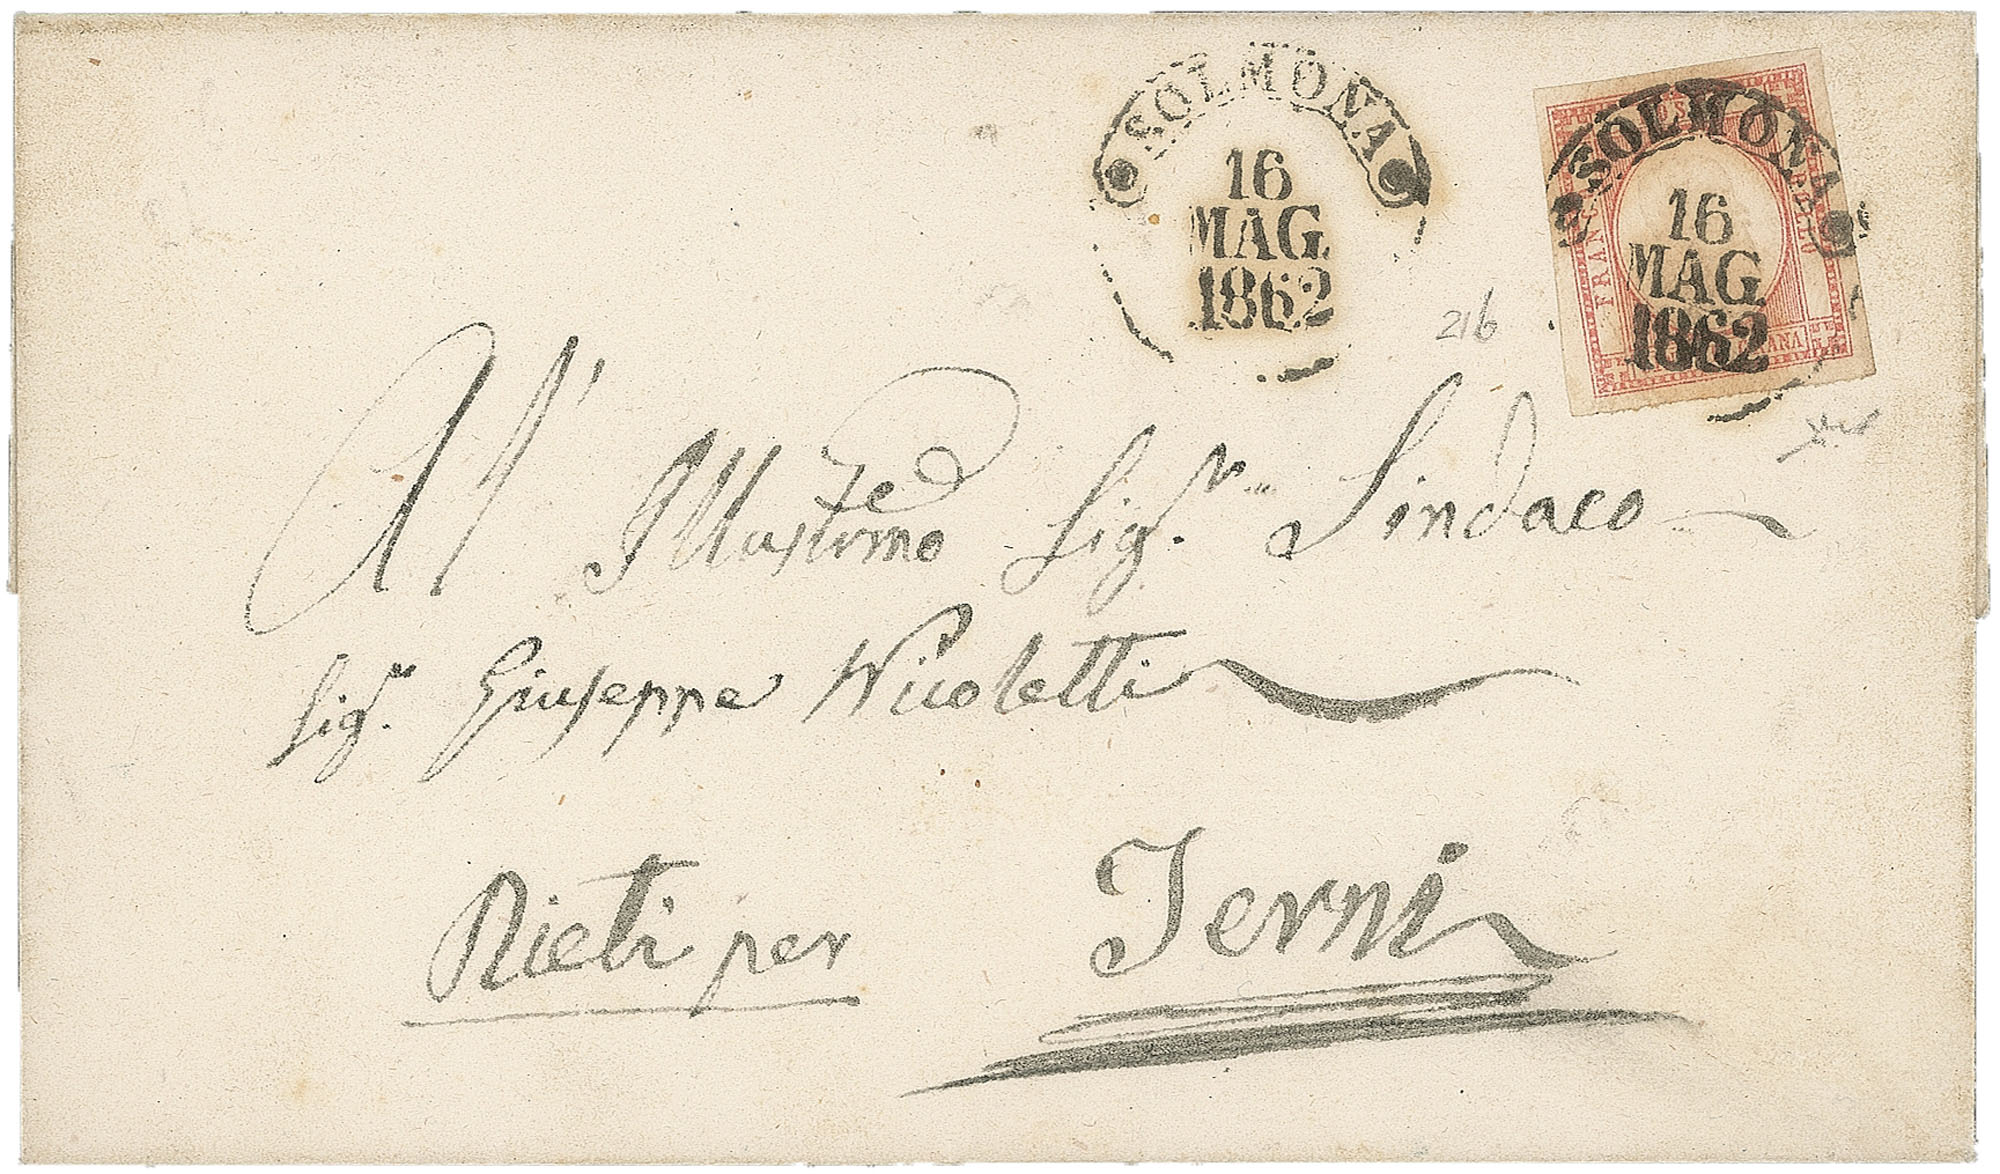 SOLMONA
16
MAG
1862
SOLMONA
16
MAG
1862
FRANCO
BOLLO
216
All' Illustrmo Sigr. Sindaco
Sigr. Giuseppe Nicoletti
Rieti per Terni